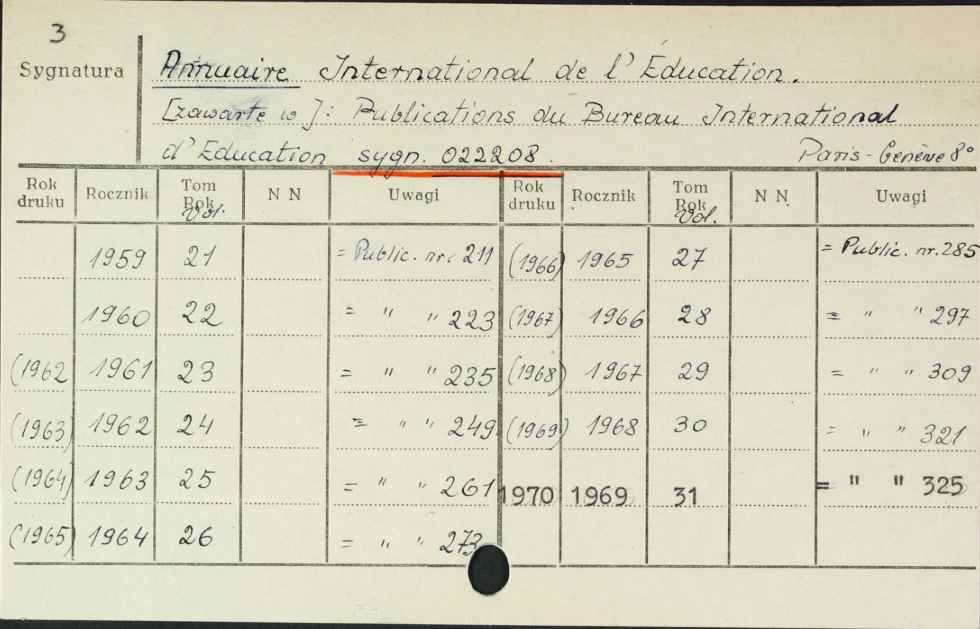 3
Sygnatura
Annuaire International de l'Éducation.
[zawarte w]: Publications du Bureau International
d'Education sygn. 022208. Paris-Genève 8°
Rok druku Rocznik Tom Rok Vol. N N Uwagi Rok druku Rocznik Tom Rok Vol. N N. Uwagi
1959 21 = Public. nr. 211 (1966) 1965 27 = Public. nr. 285
1960 22 = " " 223 (1967) 1966 28 = " " 297
(1962 1961 23 = " " 235 (1968) 1967 29 = " " 309
(1963) 1962 24 = " " 249 (1969) 1968 30 = " " 321
(1964) 1963 25 = " " 261 1970 1969 31 = " " 325
(1965) 1964 26 = " " 273